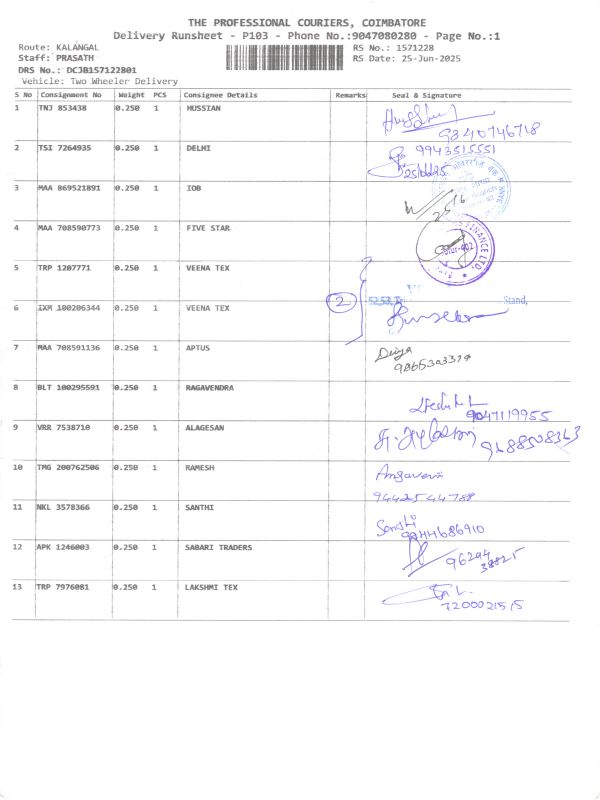 THE PROFESSIONAL COURIERS, COIMBATORE
Delivery Runsheet - P103 - Phone No.:9047080280 - Page No.:1
Route: KALANGAL RS No.: 1571228
Staff: PRASATH RS Date: 25-Jun-2025
DRS No.: DCJB157122801
Vehicle: Two Wheeler Delivery
S No Consignment No Weight PCS Consignee Details Remarks Seal & Signature
1 TNJ 853438 0.250 1 HUSSIAN
9340746718
2 TSI 7264935 0.250 1 DELHI 9943515551
3 MAA 869521891 0.250 1 IOB
4 MAA 708590773 0.250 1 FIVE STAR
FINANCE LTD.
5 TRP 1207771 0.250 1 VEENA TEX
2 Stand,
6 IXM 100206344 0.250 1 VEENA TEX
7 MAA 708591136 0.250 1 APTUS Deiya
9865303374
8 BLT 100295591 0.250 1 RAGAVENDRA
9047119955
9 VRR 7538710 0.250 1 ALAGESAN
9688508363
10 TMG 200762506 0.250 1 RAMESH
9442544788
11 NKL 3578366 0.250 1 SANTHI Santhi
9944686910
12 APK 1246003 0.250 1 SABARI TRADERS 96294
38825
13 TRP 7976081 0.250 1 LAKSHMI TEX
7200021515